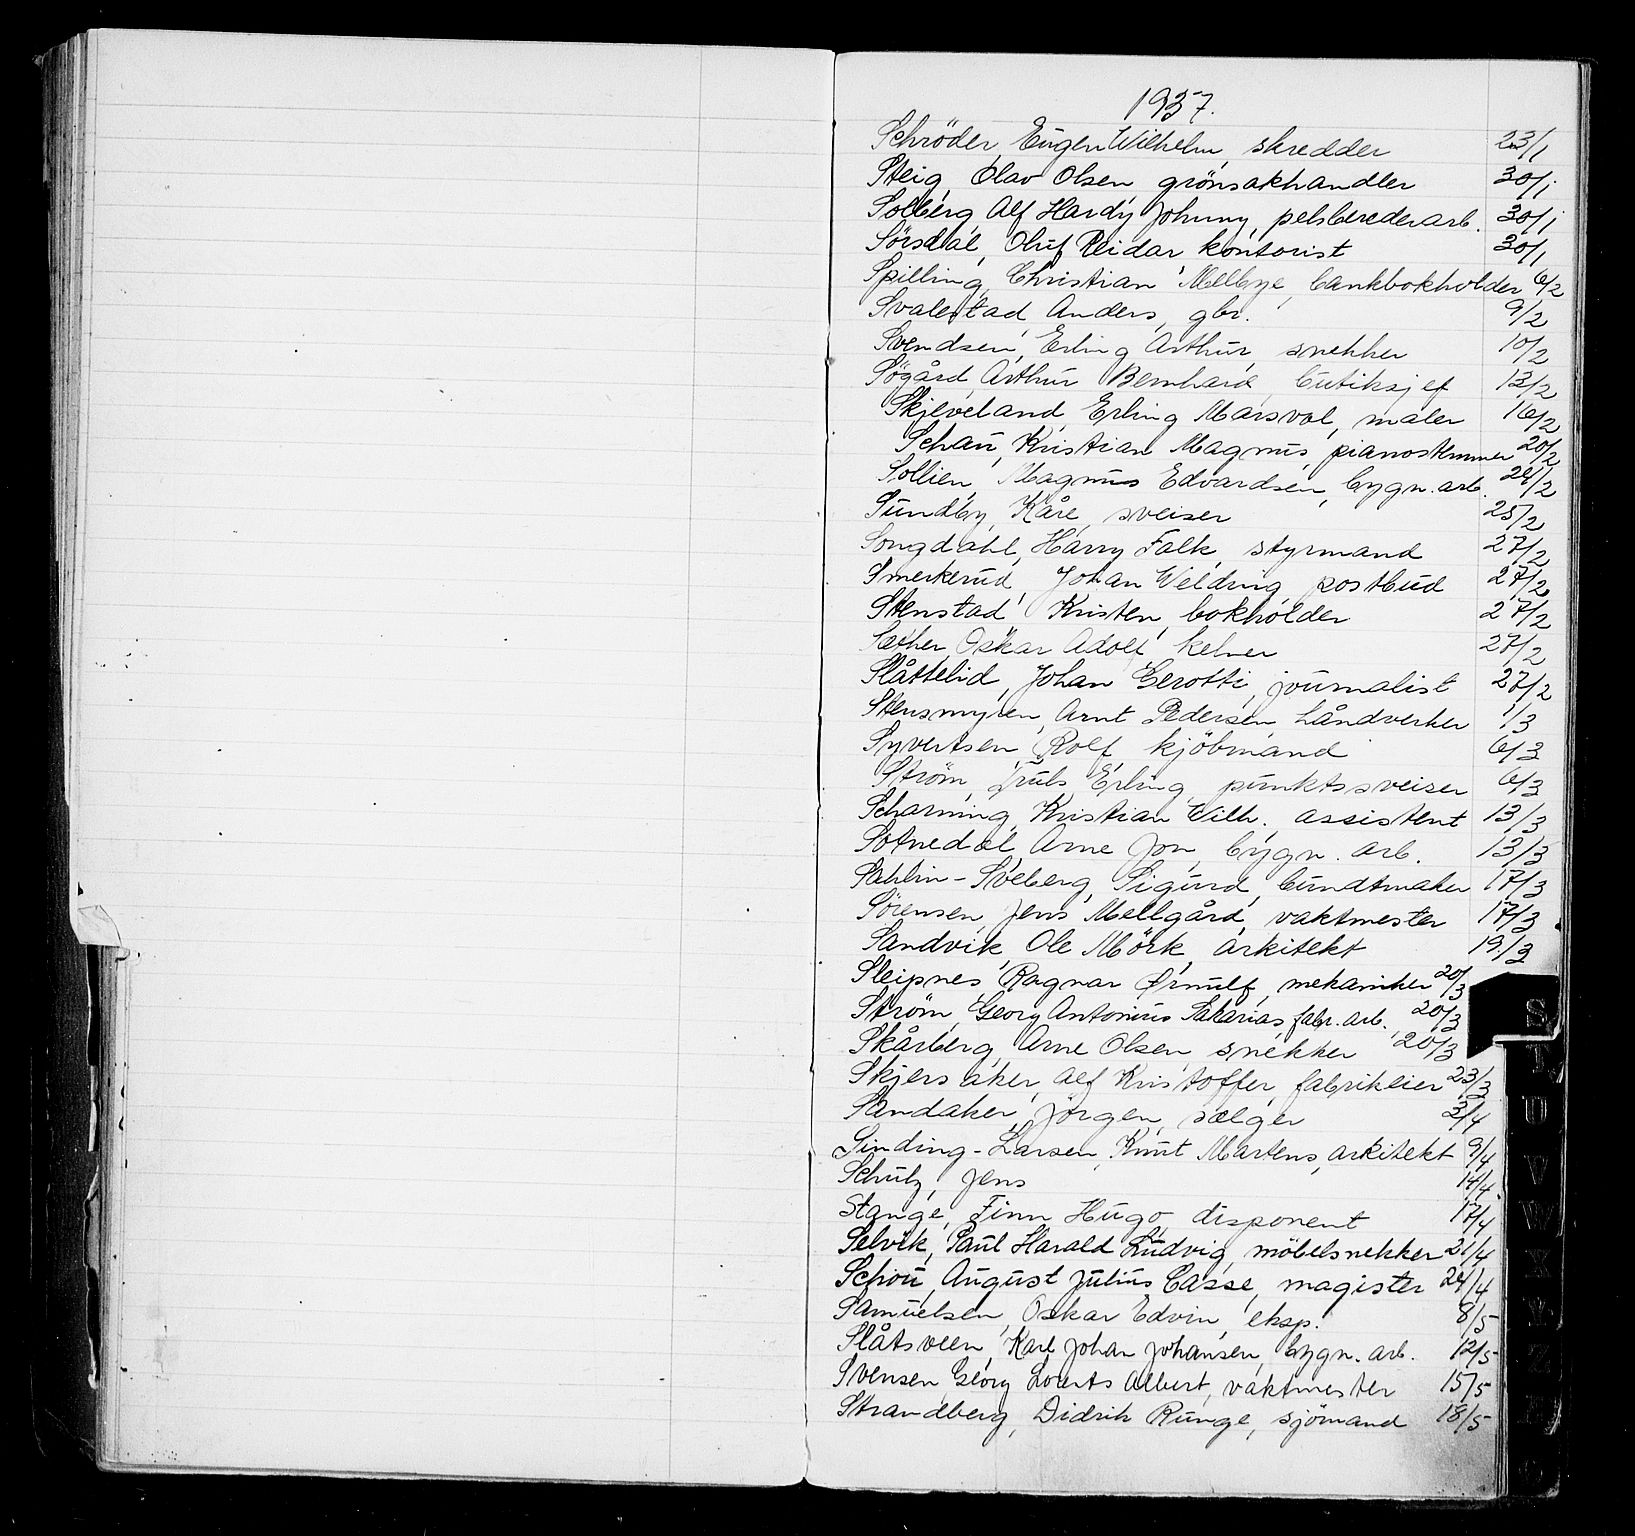 1937.
Schröder, Eugen Wilhelm, skredder 23/1
Steig, Olav Olsen, grönsakhandler 30/1
Solberg, Alf Hardy Johnny, pelsberederarb. 30/1
Sörsdal, Oluf Reidar, kontorist 30/1
Spilling, Christian Melbye, bankbokholder 6/2
Svalestad, Anders, gbr. 9/2
Svendsen, Erling Arthur, snekker 10/2
Søgård, Arthur Bernhard, butiksjef 13/2
Skjeveland, Erling Marsvol, maler 16/2
Schau, Kristian Magnus, pianostemmer 20/2
Sollien, Magnus Edvardsen, bygn. arb. 24/2
Sundby, Kåre, sveiser 25/2
Songdahl, Harry Falk, styrmand 27/2
Smerkerud, Johan Weldrig, postbud 27/2
Stenstad, Kristen, bokholder 27/2
Sæther, Oskar Adolf, kelner 27/2
Slåttelid, Johan Gerotti, journalist 27/2
Stensmyren, Arnt Pedersen, håndverker 1/3
Syvertsen, Rolf, kjöbmand 6/3
Ström, Truls Erling, punktssveiser 6/3
Scharning, Kristian Wilh. assistent 13/3
Sotnedal, Arne Jon, bygn. arb. 13/3
Sahlin-Sveberg, Sigurd, bundtmaker 17/3
Sørensen, Jens Mellgård, vaktmester 17/3
Sandvik, Ole Mörk, arkitekt 19/3
Sleipnes, Ragnar Ørnulf, mekaniker 20/3
Ström, Georg Antonius Sakarias, fabr. arb. 20/3
Skårberg, Arne Olsen, snekker 20/3
Skjersaker, Alf Kristoffer, fabrikeier 23/3
Sandaker, Jörgen, sælger 3/4
Sinding-Larsen, Knut Martens, arkitekt 9/4
Schulz, Jens 14/4
Stange, Finn Hugo, disponent 17/4
Selvik, Paul Harald Ludvig, möbelsnekker 21/4
Schou, August Julius Casse, magister 24/4
Samuelsen, Oskar Edvin, eksp. 8/5
Slåtsveen, Karl Johan Johansen, bygn. arb. 12/5
Svensen, Georg Lorents Albert, vaktmester 15/5
Strandberg, Didrik Runge, sjömand 18/5
S
T
U
V
W
X
Y
Z